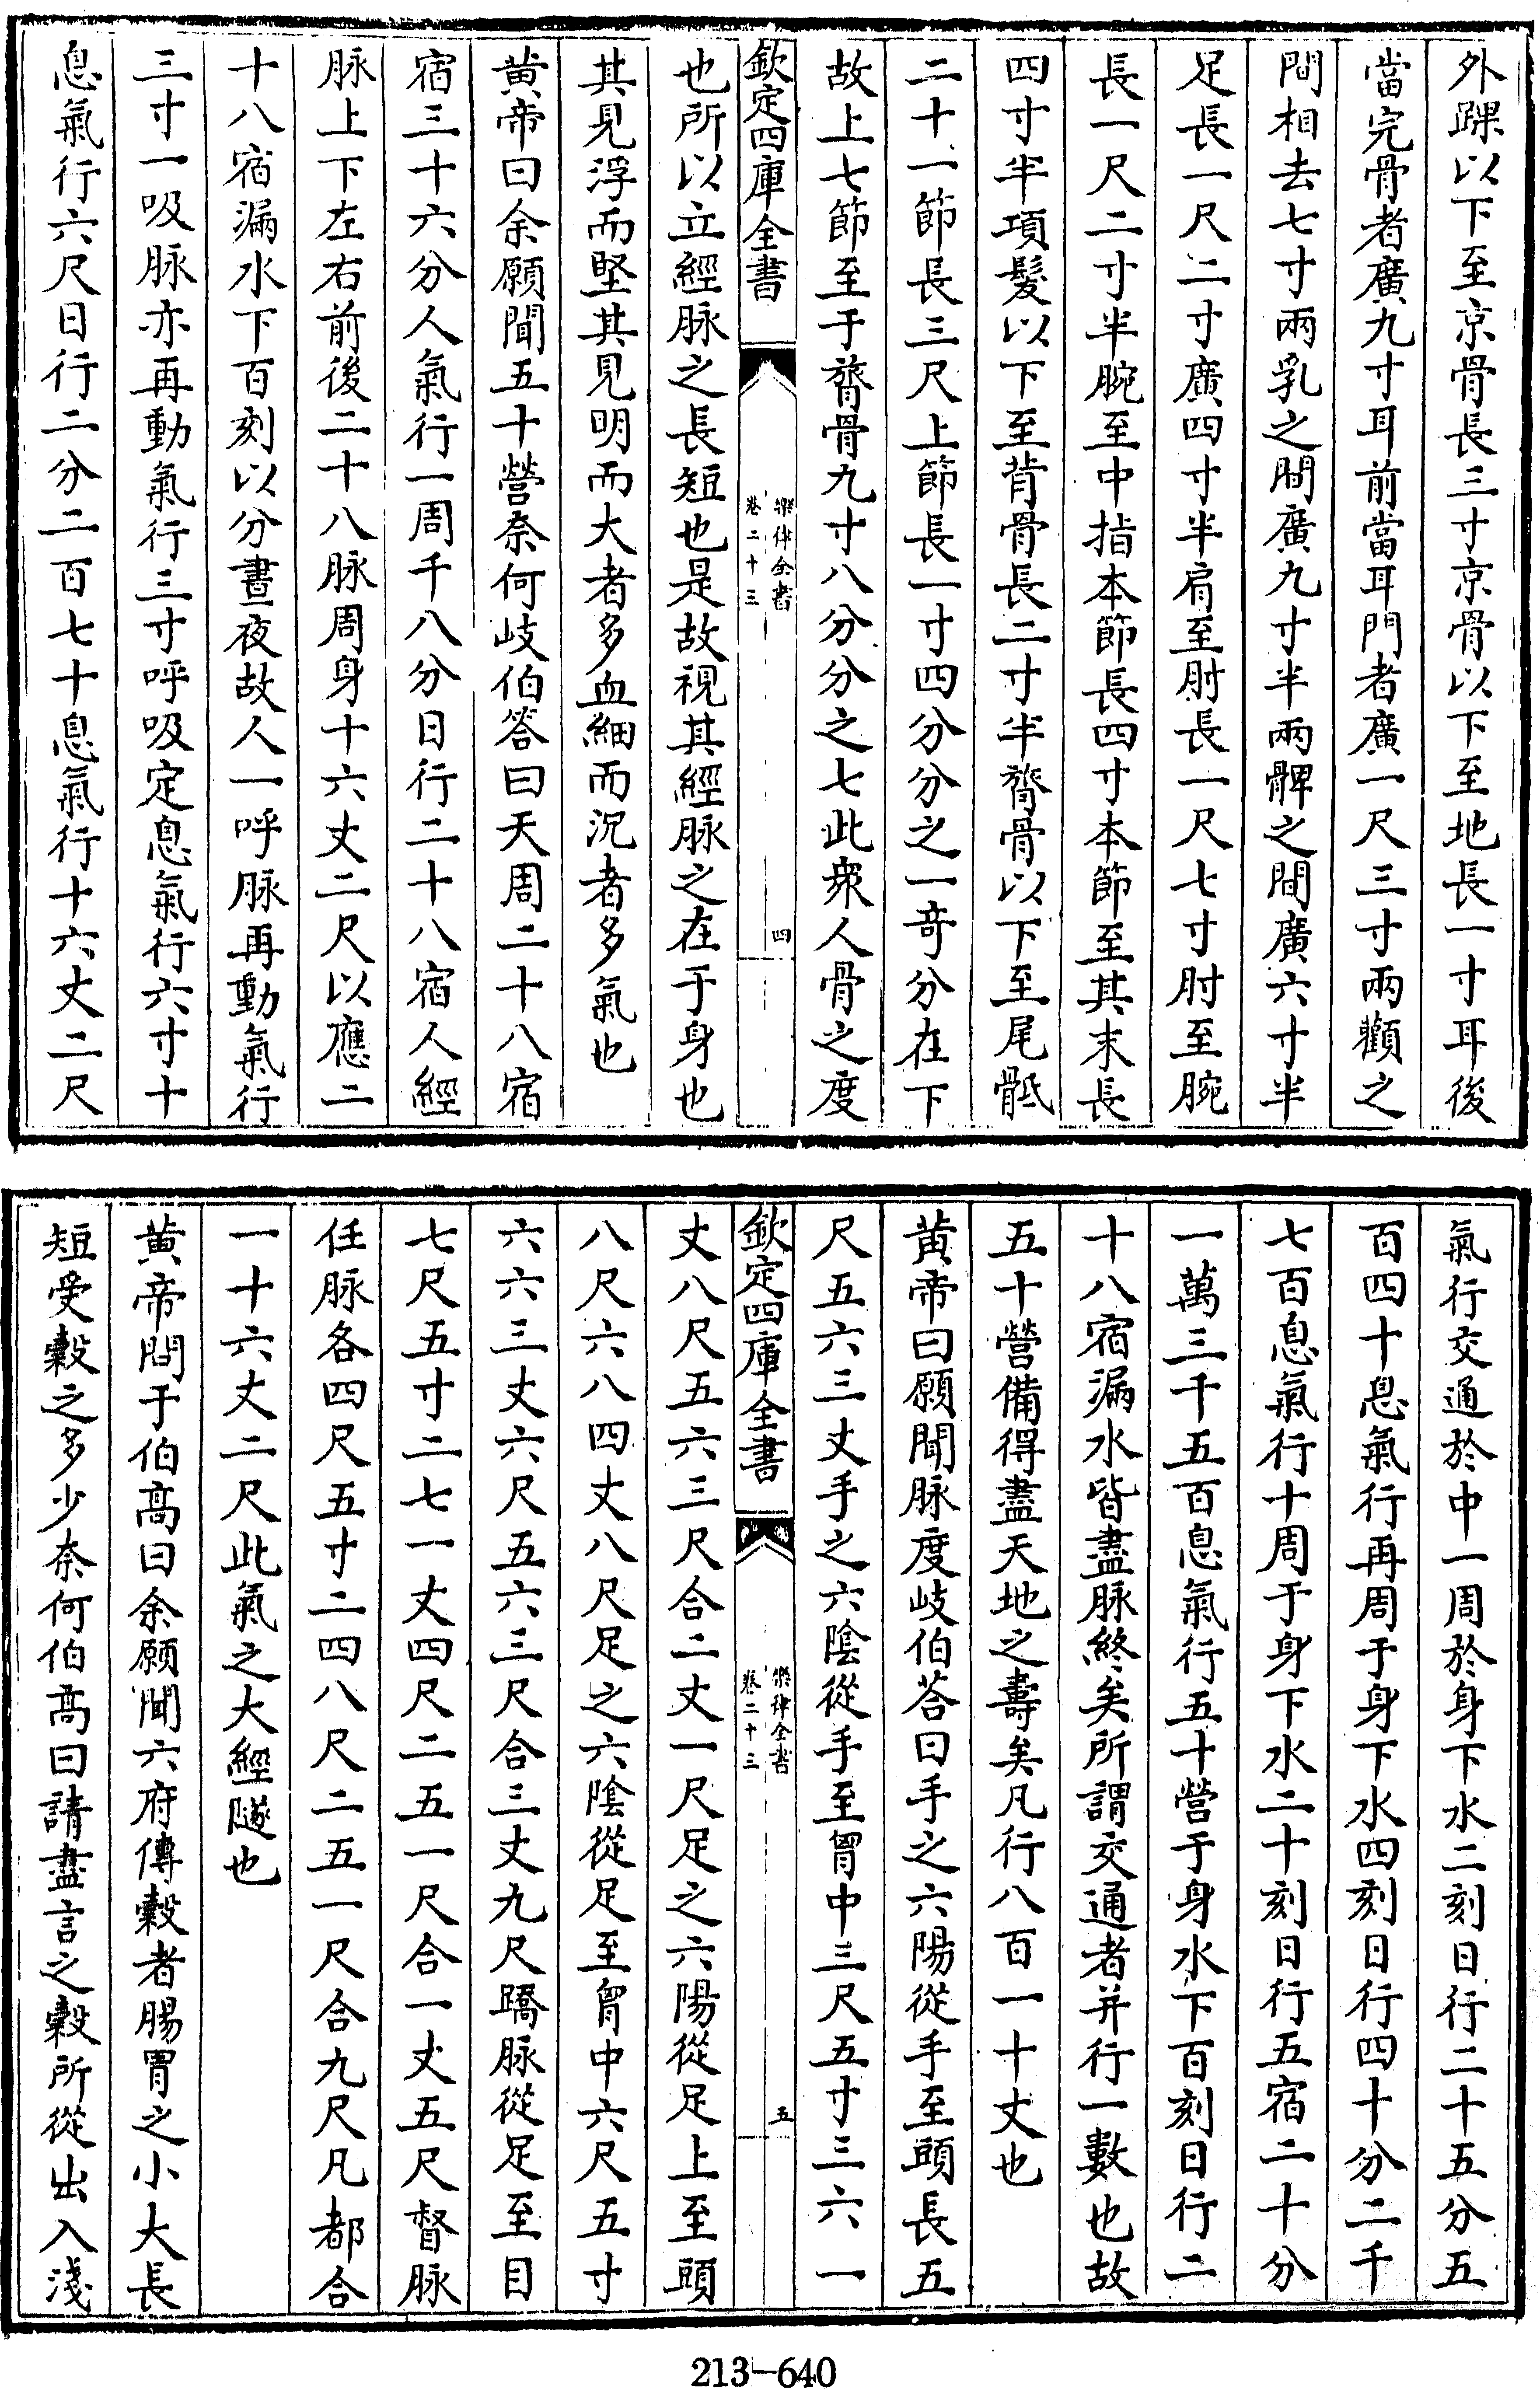 外踝以下至京骨長三寸京骨以下至地長一寸耳後
當完骨者廣九寸耳前當耳門者廣一尺三寸兩顴之
間相去七寸兩乳之間廣九寸半兩髀之間廣六寸半
足長一尺二寸廣四寸半肩至肘長一尺七寸肘至腕
長一尺二寸半腕至中指本節長四寸本節至其末長
四寸半項髮以下至背骨長二寸半膂骨以下至尾骶
二十一節長三尺上節長一寸四分分之一奇分在下
故上七節至于膂骨九寸八分分之七此衆人骨之度
欽定四庫全書
樂律全書
卷二十三
四
也所以立經脉之長短也是故視其經脉之在于身也
其見浮而堅其見明而大者多血細而沉者多氣也
黄帝曰余願聞五十營奈何岐伯答曰天周二十八宿
宿三十六分人氣行一周千八分日行二十八宿人經
脉上下左右前後二十八脉周身十六丈二尺以應二
十八宿漏水下百刻以分晝夜故人一呼脉再動氣行
三寸一吸脉亦再動氣行三寸呼吸定息氣行六寸十
息氣行六尺日行二分二百七十息氣行十六丈二尺
氣行交通於中一周於身下水二刻日行二十五分五
百四十息氣行再周于身下水四刻日行四十分二千
七百息氣行十周于身下水二十刻日行五宿二十分
一萬三千五百息氣行五十營于身水下百刻日行二
十八宿漏水皆盡脉終矣所謂交通者并行一數也故
五十營備得盡天地之壽矣凡行八百一十丈也
黄帝曰願聞脉度岐伯荅曰手之六陽從手至頭長五
尺五六三丈手之六陰從手至胷中三尺五寸三六一
欽定四庫全書
樂律全書
卷二十三
五
丈八尺五六三尺合二丈一尺足之六陽從足上至頭
八尺六八四丈八尺足之六陰從足至胷中六尺五寸
六六三丈六尺五六三尺合三丈九尺蹻脉從足至目
七尺五寸二七一丈四尺二五一尺合一丈五尺督脉
任脉各四尺五寸二四八尺二五一尺合九尺凡都合
一十六丈二尺此氣之大經隧也
黄帝問于伯高曰余願聞六府傳穀者腸胃之小大長
短受穀之多少奈何伯高曰請盡言之穀所從出入淺
213-640